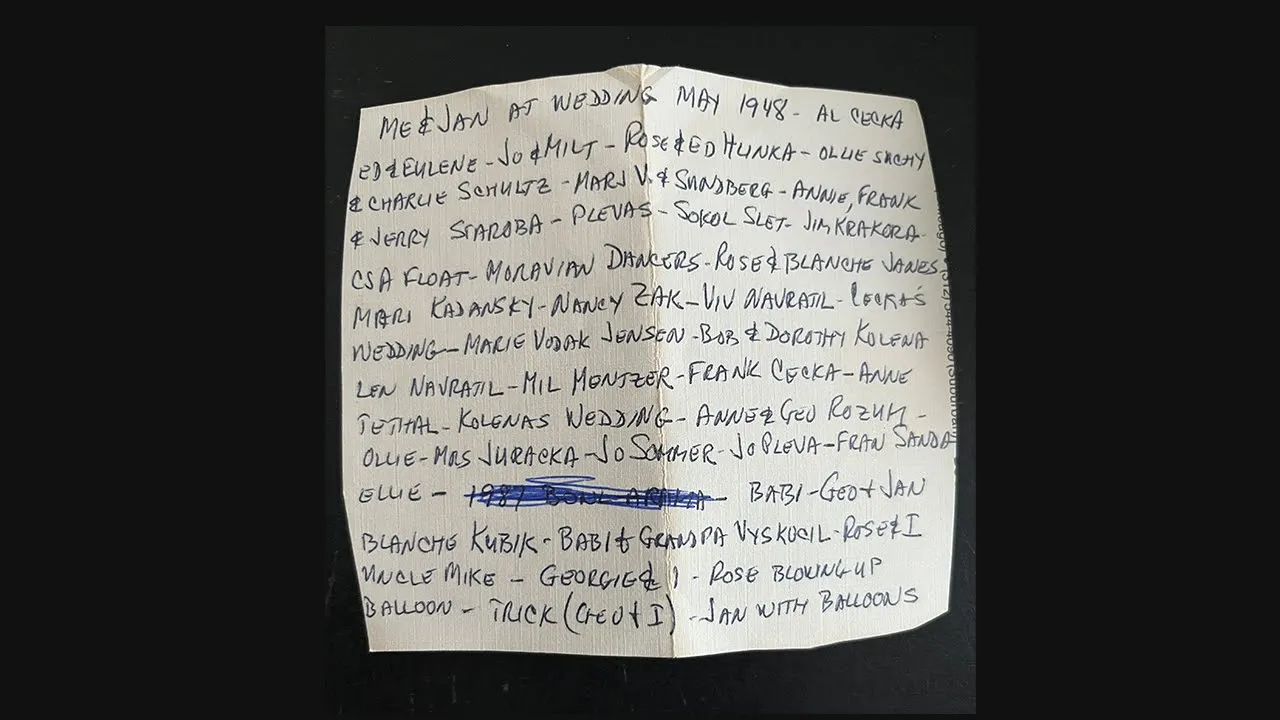 ME & JAN AT WEDDING MAY 1948 - AL CECKA
ED & EULENE - JO & MILT - ROSE & ED HLINKA - OLLIE SUCHY
& CHARLIE SCHULTZ - MARJ V. & SUNDBERG - ANNIE, FRANK
& JERRY STAROBA - PLEVAS - SOKOL SLET - JIM KRAKORA
CSA FLOAT - MORAVIAN DANCERS - ROSE & BLANCHE JANES
MARI KADANSKY - NANCY ZAK - VIV NAVRATIL - CECKA'S
WEDDING - MARIE VODAK JENSEN - BOB & DOROTHY KOLENA
LEN NAVRATIL - MIL MENTZER - FRANK CECKA - ANNE
TETHAL - KOLENAS WEDDING - ANNE & GEO ROZUM -
OLLIE - MRS JURACKA - JO SOMMER - JO PLEVA - FRAN SANDA
ELLIE - BABI - GEO & JAN
BLANCHE KUBIK - BABI & GRANDPA VYSKOCIL - ROSE & I
UNCLE MIKE - GEORGIE & I - ROSE BLOWING UP
BALLOON - TRICK (GEO & I) - JAN WITH BALLOONS